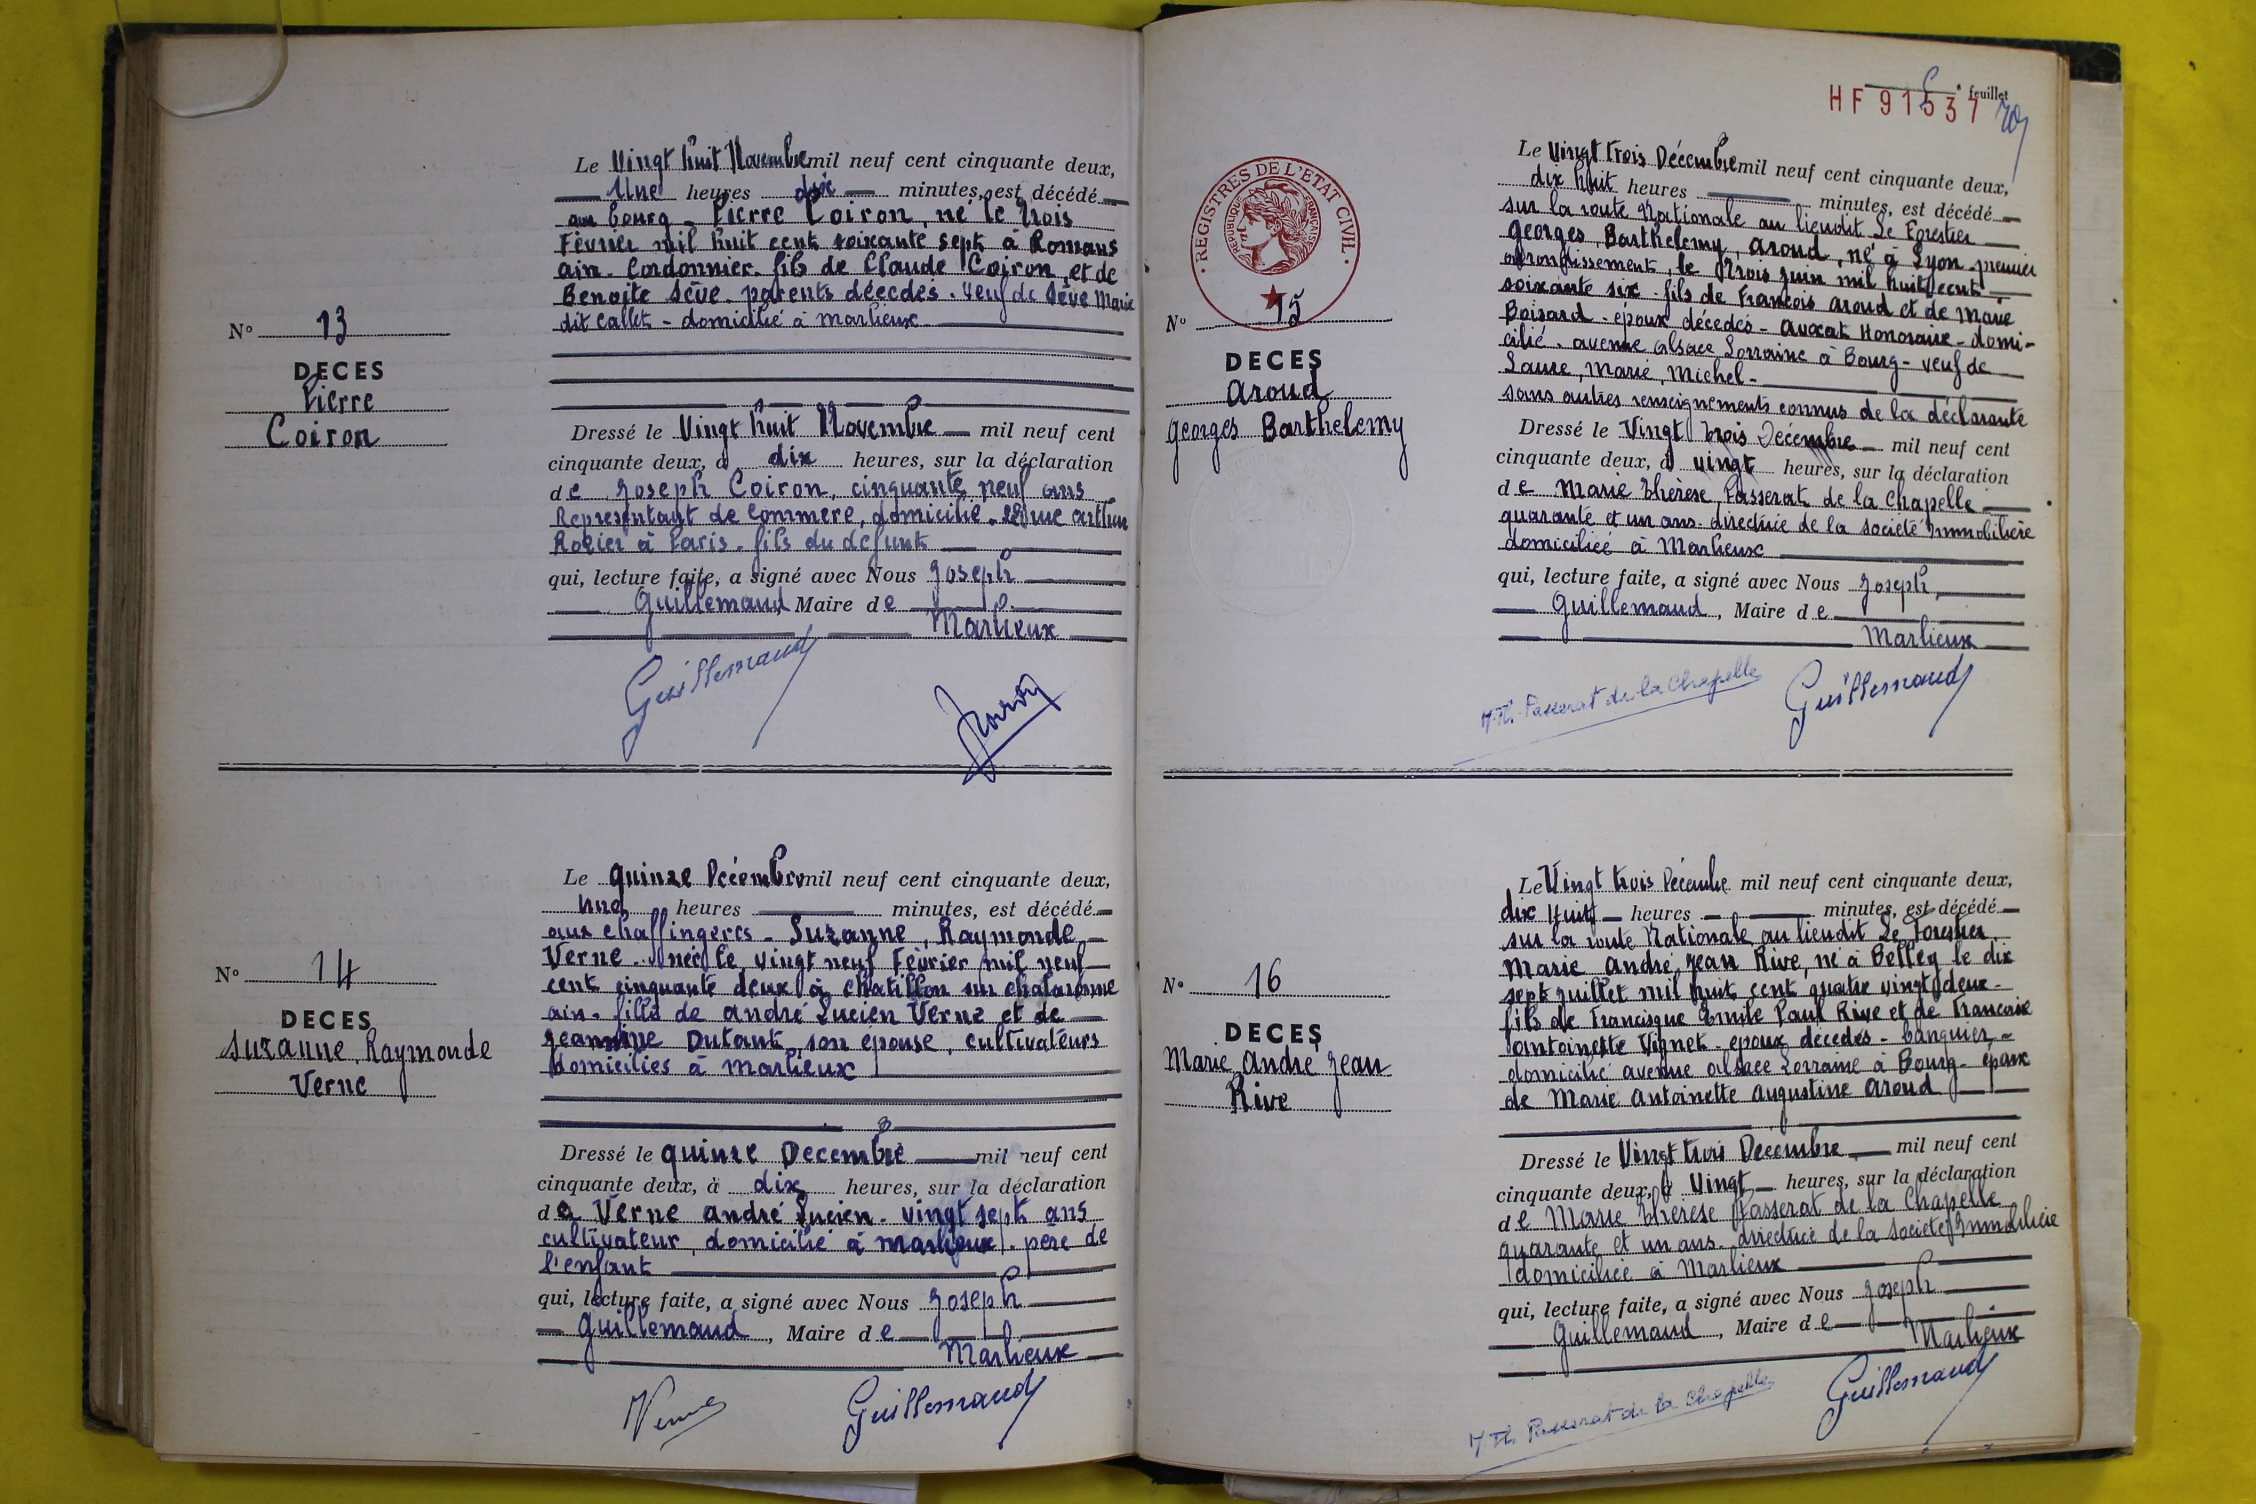 Le Vingt huit Novembre mil neuf cent cinquante deux,
Une heures dix minutes, est décédé
au bourg - Pierre Coiron, né le trois
Février mil huit cent soixante sept à Romans
ain - Cordonnier - fils de Claude Coiron et de
Benoite Sève - parents décedés - Veuf de Sève Marie
dit Callet - domicilié à Marlieux
N° 13
DECES
Pierre
Coiron
Dressé le Vingt huit Novembre mil neuf cent
cinquante deux, à dix heures, sur la déclaration
de Joseph Coiron, cinquante neuf ans
Représentant de Commerce, domicilié 22 rue
à Paris - fils du défunt
qui, lecture faite, a signé avec Nous Joseph
Guillemaud, Maire de
Marlieux
Guillemaud
Le quinze Décembre mil neuf cent cinquante deux,
heures minutes, est décédé
aux chaffingeres - Suzanne, Raymonde
Verne née le vingt neuf Février mil neuf
cent cinquante deux à Chatillon sur chalaronne
ain - fille de andré Lucien Verne et de
Jeannine Dutant, son épouse, cultivateurs
domiciliés à Marlieux
N° 14
DECES
Suzanne, Raymonde
Verne
Dressé le quinze Decembre mil neuf cent
cinquante deux, à dix heures, sur la déclaration
de Verne andré Lucien - vingt sept ans
cultivateur, domicilié à Marlieux - père de
l'enfant
qui, lecture faite, a signé avec Nous Joseph
Guillemaud, Maire de
Marlieux
Verne
Guillemaud
feuillet
HF 91537
REGISTRES DE L'ETAT CIVIL
REPUBLIQUE FRANÇAISE
Le Vingt trois Décembre mil neuf cent cinquante deux,
dix huit heures minutes, est décédé
sur la route Nationale au lieudit Le Forestier
Georges, Barthelemy, Aroud, né à Lyon - premier
arrondissement, le trois juin mil huit cent
soixante six - fils de François Aroud et de Marie
Boisard - époux décedés - avocat Honoraire - domi-
cilié - avenue alsace Lorraine à Bourg - veuf de
Laure, Marie, Michel -
sans autres renseignements connus de la déclarante
N° 15
DECES
Aroud
Georges Barthelemy
Dressé le Vingt trois Décembre mil neuf cent
cinquante deux, à vingt heures, sur la déclaration
de Marie Thérèse Passerat de la Chapelle
quarante et un ans - directrice de la société Immobilière
domiciliée à Marlieux
qui, lecture faite, a signé avec Nous Joseph,
Guillemaud, Maire de
Marlieux
M. Th. Passerat de la Chapelle
Guillemaud
Le Vingt trois Décembre mil neuf cent cinquante deux,
dix Huit heures minutes, est décédé
sur la route Nationale au lieudit Le Forestier
Marie André Jean Rive, né à Belley le dix
sept juillet mil huit cent quatre vingt deux -
fils de Francisque Emile Paul Rive et de Francoise
Antoinette Vignet - epoux décedés - banquier -
domicilié avenue alsace Lorraine à Bourg - époux
de Marie Antoinette Augustine Aroud
N° 16
DECES
Marie André Jean
Rive
Dressé le Vingt trois Décembre mil neuf cent
cinquante deux, à Vingt heures, sur la déclaration
de Marie Thérèse Passerat de la Chapelle
quarante et un ans - directrice de la société Immobilière
domiciliée à Marlieux
qui, lecture faite, a signé avec Nous Joseph
Guillemaud, Maire de
Marlieux
M Th Passerat de la Chapelle
Guillemaud